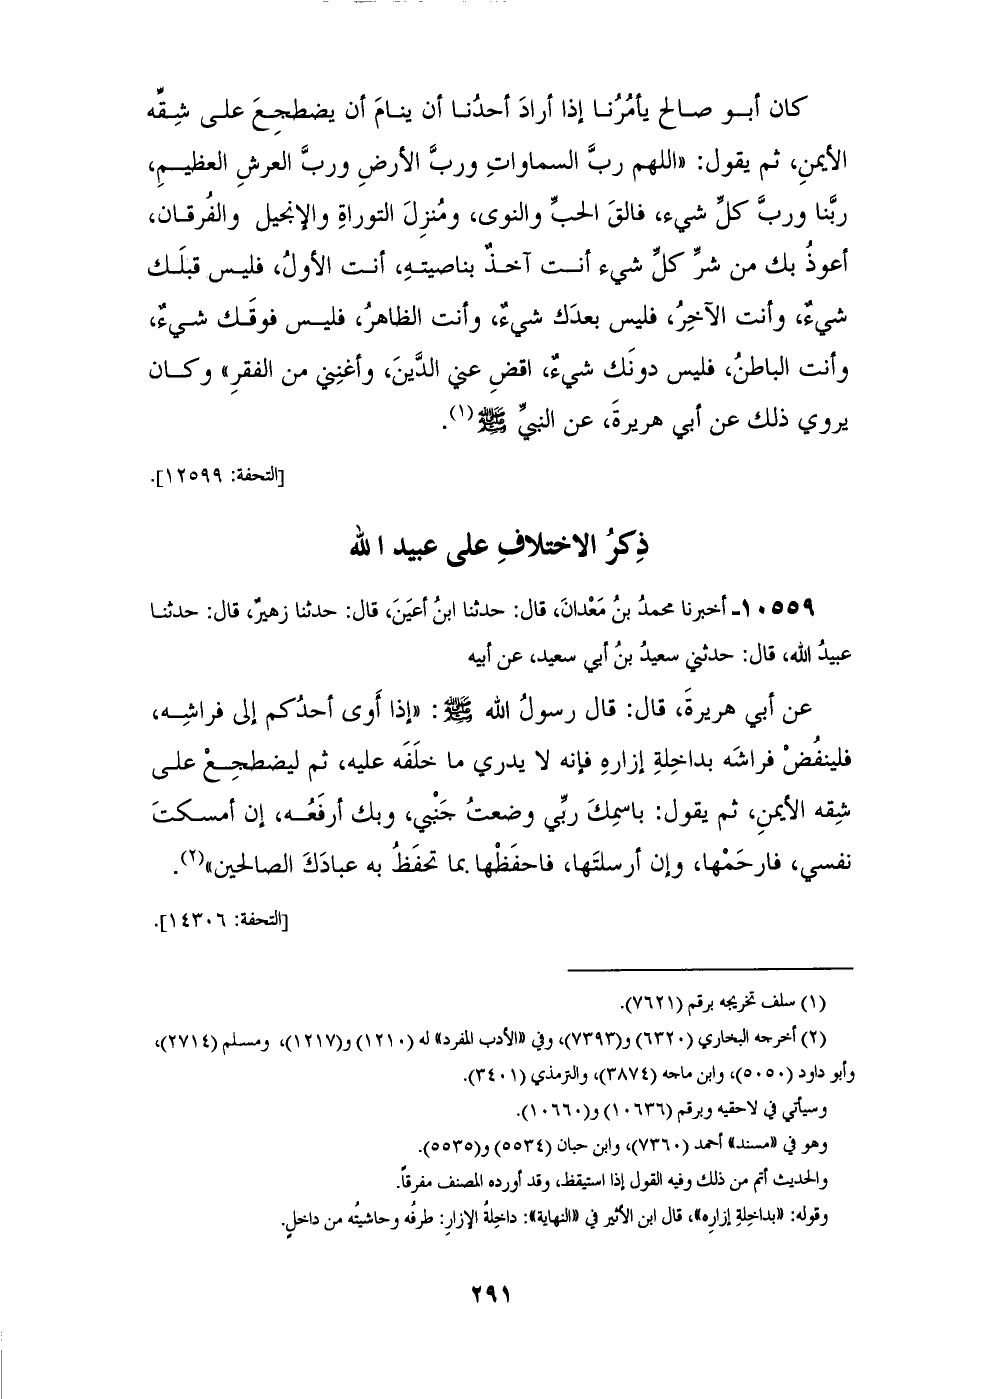 كان أبـو صالح يأمُرُنـا إذا أرادَ أحدُنـا أن ينـامَ أن يضطجِـعَ علـى شِقِّه
الأيمنِ، ثم يقول: «اللهم ربَّ السماواتِ وربَّ الأرضِ وربَّ العرشِ العظيـمِ،
ربَّنا وربَّ كلِّ شيء، فالقَ الحبِّ والنوى، ومُنزِلَ التوراةِ والإنجيل والفُرقـان،
أعوذُ بك من شرِّ كلِّ شيء أنـت آخـذٌ بناصيتـهِ، أنـت الأولُ، فليـس قبلَـك
شيءٌ، وأنت الآخِرُ، فليس بعدَك شيءٌ، وأنت الظاهرُ، فليـس فوقَـك شـيءٌ،
وأنت الباطنُ، فليس دونَك شيءٌ، اقضِ عني الدَّينَ، وأغنِني من الفقرِ» وكـان
يروي ذلك عن أبي هريرةَ، عن النبيِّ ﷺ(١).
[التحفة: ١٢٥٩٩].
ذِكرُ الاختلافِ على عبيد الله
١٠٥٥٩ـ أخبرنا محمدُ بنُ مَعْدانَ، قال: حدثنا ابنُ أعيَنَ، قال: حدثنا زهيرٌ، قال: حدثنـا
عبيدُ الله، قال: حدثني سعيدُ بنُ أبي سعيد، عن أبيه
عن أبي هريرةَ، قال: قال رسولُ الله ﷺ: «إذا أَوى أحدُكم إلى فراشِـه،
فلينفُضْ فراشَه بداخِلةِ إزارهِ فإنه لا يدري ما خلَفَه عليه، ثم ليضطجِـعْ علـى
شِقه الأيمنِ، ثم يقول: باسمِكَ ربِّي وضعتُ جَنْبي، وبك أرفَعُـه، إن أمسـكتَ
نفسي، فارحَمْها، وإن أرسلتَها، فاحفَظْها بما تحفَظُ به عبادَكَ الصالحين»(٢).
[التحفة: ١٤٣٠٦].
(١) سلف تخريجه برقم (٧٦٢١).
(٢) أخرجه البخاري (٦٣٢٠) و(٧٣٩٣)، وفي «الأدب المفرد» له (١٢١٠) و(١٢١٧)، ومسلم (٢٧١٤)،
وأبو داود (٥٠٥٠)، وابن ماجه (٣٨٧٤)، والترمذي (٣٤٠١).
وسيأتي في لاحقيه وبرقم (١٠٦٣٦) و(١٠٦٦٠).
وهو في «مسند» أحمد (٧٣٦٠)، وابن حبان (٥٥٣٤) و(٥٥٣٥).
والحديث أتم من ذلك وفيه القول إذا استيقظ، وقد أورده المصنف مفرقاً.
وقوله: «بداخِلةِ إزاره»، قال ابن الأثير في «النهاية»: داخِلةُ الإزارِ: طرفُه وحاشيتُه من داخلٍ.
٢٩١